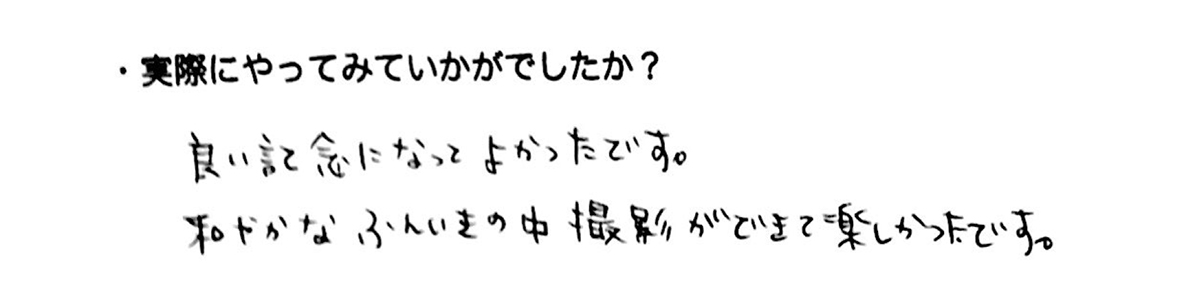 ・実際にやってみていかがでしたか？
良い記念になってよかったです。
和やかなふんいきの中撮影ができて楽しかったです。